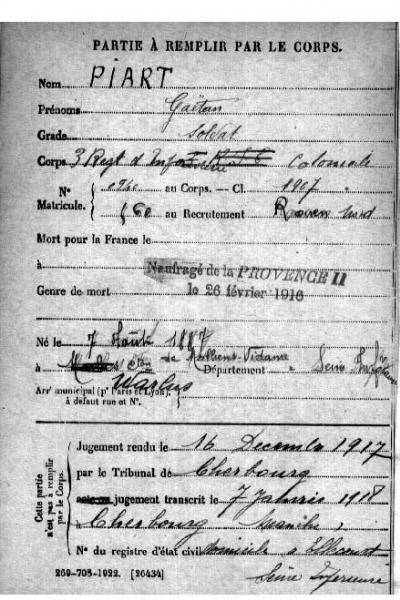 PARTIE À REMPLIR PAR LE CORPS.
Nom PIART
Prénoms Gaëtan
Grade Soldat
Corps 3 Regt d'Infie Coloniale
N° Matricule. au Corps. — Cl. 1907
au Recrutement Rouen Nord
Mort pour la France le
à
Naufragé de la PROVENCE II
Genre de mort
le 26 février 1916
Né le 7 Août 1887
à de Molliens-Vidame Département Seine Inférieure
Warlus
Arrt municipal (pr Paris et Lyon),
à défaut rue et N°.
Cette partie n'est pas à remplir par le Corps.
Jugement rendu le 16 Decembre 1917
par le Tribunal de Cherbourg
acte ou jugement transcrit le 7 Janvier 1918
à Cherbourg Manche
N° du registre d'état civil domicile à
Seine Inferieure
269-708-1922. [26434]